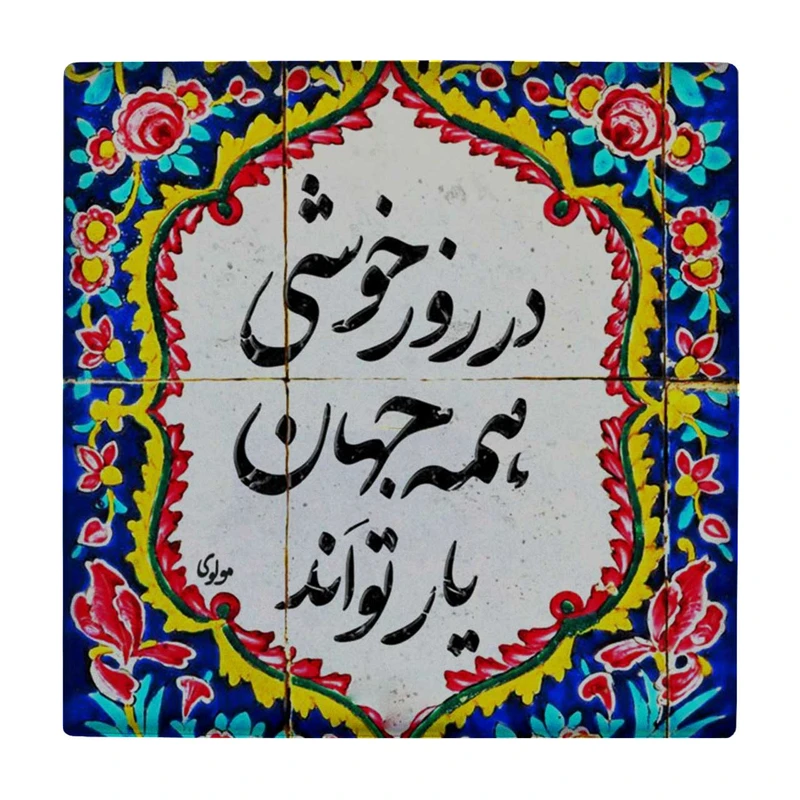 در روز خوشی
همه جهان
یار تواَند
مولوی